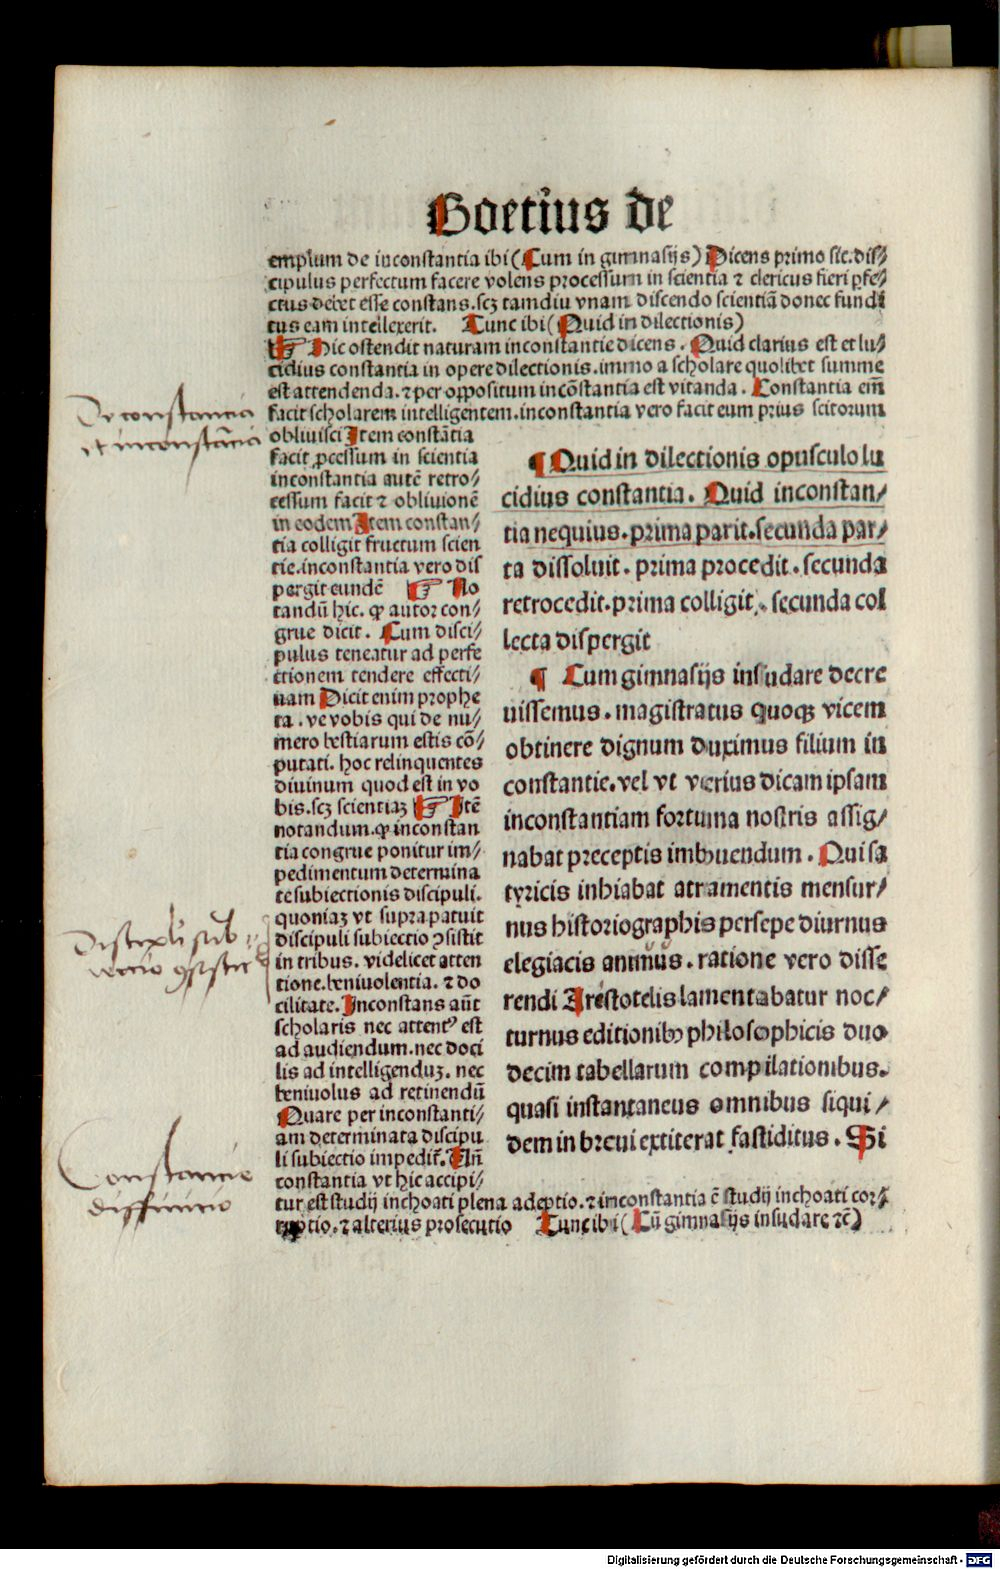 Boetius de
emplum de inconstantia ibi (Cum in gimnasijs) Dicens primo sic. dis⸗
cipulus perfectum facere volens processum in scientia ⁊ clericus fieri ꝑfe⸗
ctus debet esse constans. scꝫ tamdiu vnam discendo scientiā donec fundi
tus eam intellexerit. Tunc ibi (Quid in dilectionis)
☞ Hic ostendit naturam inconstantie dicens. Quid clarius est et lu⸗
cidius constantia in opere dilectionis. immo a scholare quolibet summe
est attendenda. ⁊ per oppositum incōstantia est vitanda. Constantia em̄
facit scholarem intelligentem. inconstantia vero facit eum prius scitorum
De constancia
et inconstācia
obliuisci Item constātia
facit ꝓcessum in scientia
inconstantia autē retro⸗
cessum facit ⁊ obliuionē
in eodem Item constan⸗
tia colligit fructum scien
tie. inconstantia vero dis
pergit eundē ☞ No
tandū hic. ꝙ autor con⸗
grue dicit. Cum disci⸗
pulus teneatur ad perfe
ctionem tendere effecti⸗
uam Dicit enim prophe
ta. ve vobis qui de nu⸗
mero bestiarum estis cō⸗
putati. hoc relinquentes
diuinum quod est in vo
bis. scꝫ scientiaꝫ ☞ Itē
notandum. ꝙ inconstan
tia congrue ponitur im⸗
pedimentum determina
te subiectionis discipuli.
quoniaꝫ vt supra patuit
discipuli subiectio ꝯsistit
in tribus. videlicet atten
tione. beniuolentia. ⁊ do
cilitate. Inconstans aūt
scholaris nec attentꝰ est
ad audiendum. nec doci
lis ad intelligenduꝫ. nec
beniuolus ad retinendū
Quare per inconstanti⸗
am determinata discipu
li subiectio impedit̄. Un̄
constantia vt hic accipi⸗
Discipuli sub
ieccio ꝯsistit
Constancie
diffinicio
¶ Quid in dilectionis opusculo lu
cidius constantia. Quid inconstan⸗
tia nequius. prima parit. secunda par⸗
ta dissoluit. prima procedit. secunda
retrocedit. prima colligit. secunda col
lecta dispergit
¶ Cum gimnasijs insudare decre
uissemus. magistratus quoqꝫ vicem
obtinere dignum duximus filium in
constantie. vel vt verius dicam ipsam
inconstantiam fortuna nostris assig⸗
nabat preceptis imbuendum. Qui sa
tyricis inhiabat atramentis mensur⸗
nus historiographis persepe diurnus
elegiacis animus. ratione vero disse
rendi Arestotelis lamentabatur noc⸗
turnus editionibꝰ philosophicis duo
decim tabellarum compilationibus.
quasi instantaneus omnibus siqui⸗
dem in breui extiterat fastiditus. Si
tur est studij inchoati plena adeptio. ⁊ inconstantia ē studij inchoati cor⸗
ruptio. ⁊ alterius prosecutio Tunc ibi (Cū gimnasijs insudare ⁊c̄)
Digitalisierung gefördert durch die Deutsche Forschungsgemeinschaft - DFG